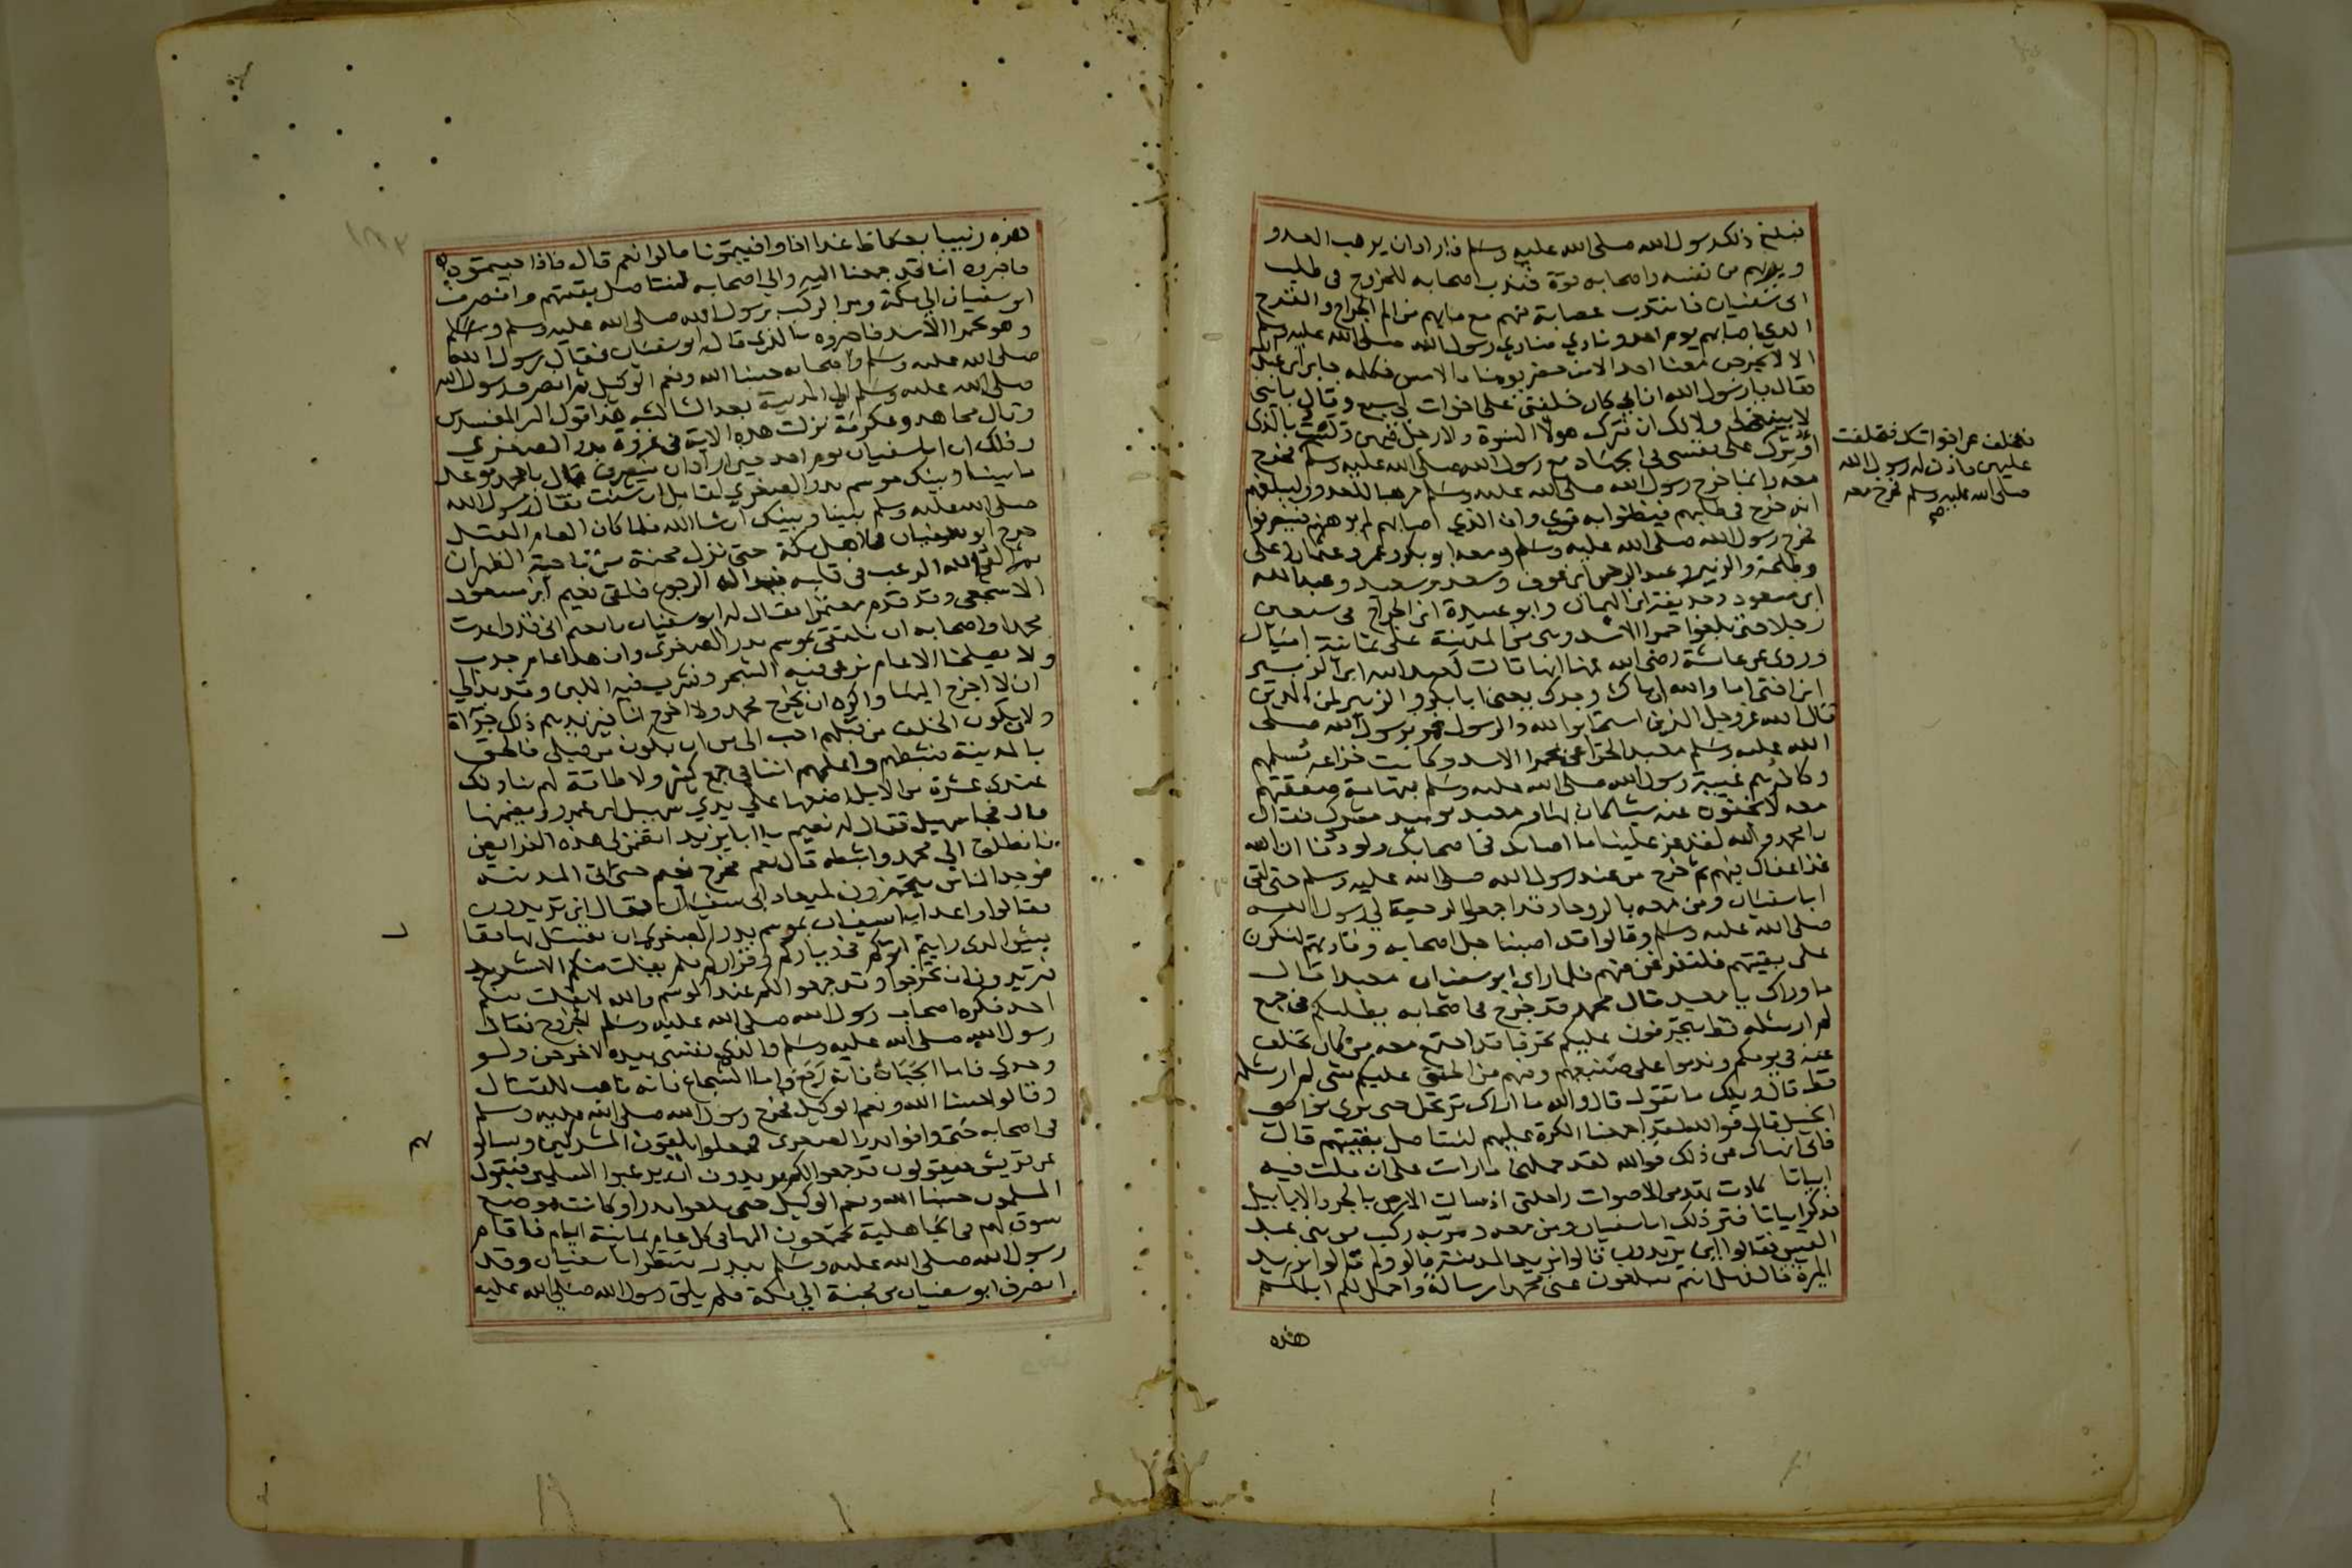 فبلغ ذلك رسول الله صلى الله عليه وسلم فاراد ان يرهب العدو
ويريهم من نفسه واصحابه قوة فندب اصحابه للخروج في طلب
ابي سفيان فانتدب عصابة منهم مع ما بهم من الم الجراح والقرح
الذي اصابهم يوم احد ونادي منادي رسول الله صلى الله عليه وسلم
الا لا يخرجن معنا احد الا من حضر يومنا بالامس فكلمه جابر ابن عبد الله
فقال يا رسول الله ان ابي كان خلفني على اخوات لي سبع وقال يا بني
لا ينبغي لي ولا لك ان نترك هولا النسوة ولا رجل فيهن ولست بالذي
اوثرك على نفسي في الجهاد مع رسول الله صلى الله عليه وسلم فخرج
معه وانما خرج رسول الله صلى الله عليه وسلم مرهبا للعدو وليبلغهم
انه خرج في طلبهم فيظنوا به قوي وان الذي اصابهم لم يوهنهم فينصرفوا
فخرج رسول الله صلى الله عليه وسلم ومعه ابو بكر وعمر وعثمان وعلى
وطلحة والزبير وعبد الرحمن ابن عوف وسعد وسعيد وعبد الله
ابن مسعود وحذيفة ابن اليمان وابو عبيدة ابن الجراح في سبعين
رجلا حتى بلغوا حمرا الاسد وهي من المدينة على ثمانية اميال
وروى عن عائشة رضي الله عنها انها قالت لعبد الله ابن الزبير
ابن اختي اما والله ان اباك وجدك يعني ابا بكر والزبير لمن الذين
قال الله عز وجل الذين استجابوا لله والرسول فمر برسول الله صلى
الله عليه وسلم معبد الخزاعي بحمرا الاسد وكانت خزاعة مسلمهم
وكافرهم عيبة رسول الله صلى الله عليه وسلم بتهامة صفقتهم
معه لا يخفون عنه شيئا كان بها ومعبد يومئذ مشرك فقال
يا محمد والله لقد عز علينا ما اصابك في اصحابك ولوددنا ان الله
قد اعفاك فيهم ثم خرج من عند رسول الله صلى الله عليه وسلم حتى لقي
ابا سفيان ومن معه بالروحا وقد اجمعوا الرجعة الى رسول الله
صلى الله عليه وسلم وقالوا قد اصبنا جل اصحابه وقادتهم لنكرن
على بقيتهم فلنفرغن منهم فلما راى ابو سفيان معبدا قال
ما وراك يا معبد قال محمد قد خرج في اصحابه يطلبكم في جمع
لم ار مثله قط يتحرقون عليكم تحرقا قد اجتمع معه من كان تخلف
عنه في يومكم وندموا على صنيعهم وفيهم من الحنق عليكم شي لم ار مثله
قط قال ويلك ما تقول قال والله ما اراك ترتحل حتى ترى نواصي
الخيل قال فوالله لقد اجمعنا الكرة عليهم لنستاصل بقيتهم قال
فاني انهاك عن ذلك فوالله لقد حملني ما رات على ان قلت فيه
ابياتا كادت تهد من الاصوات راحلتي اذ سالت الارض بالجرد الابابيل
فذكر ابياتا فثر ذلك ابا سفيان ومن معه ومر به ركب من بني عبد
القيس فقالوا اين تريدون قالوا نريد المدينة قالوا ولم قالوا نريد
الميرة قال فهل انتم مبلغون عني محمدا رسالة واحمل لكم ابلكم
هذه
فتخلف عن اخواتك فتخلفت
عليهن فاذن له رسول الله
صلى الله عليه وسلم فخرج معه
صح
هذه زبيبا بعكاظ غدا اذا وافيتمونا قالوا نعم قال فاذا جيتموه
فاخبروه انا قد جمعنا اليه والى اصحابه لنستاصل بقيتهم وانصرف
ابو سفيان الى مكة ومر الركب برسول الله صلى الله عليه وسلم
وهو بحمرا الاسد فاخبروه بالذي قال ابو سفيان فقال رسول الله
صلى الله عليه وسلم واصحابه حسبنا الله ونعم الوكيل ثم انصرف رسول الله
صلى الله عليه وسلم الى المدينة بعد الثالثة هذا قول اكثر المفسرين
وقال مجاهد وعكرمة نزلت هذه الاية في غزوة بدر الصغرى
وذلك ان ابا سفيان يوم احد حين اراد ان ينصرف قال يا محمد موعد
ما بيننا وبينك موسم بدر الصغرى لقابل ان شئت فقال رسول الله
صلى الله عليه وسلم بيننا وبينك ان شا الله فلما كان العام المقبل
خرج ابو سفيان في اهل مكة حتى نزل مجنة من ناحية الظهران
ثم القى الله الرعب في قلبه فبدا له الرجوع فلقى نعيم ابن مسعود
الاشجعي وقد قدم معتمرا فقال له ابو سفيان يا نعيم اني قد واعدت
محمدا واصحابه ان نلتقي بموسم بدر الصغرى وان هذا عام جدب
ولا يصلحنا الا عام نرعى فيه الشجر ونشرب فيه اللبن وقد بدا لي
ان لا اخرج اليها واكره ان يخرج محمد ولا اخرج انا فيزيدهم ذلك جرأة
ولان يكون الخلف من قبلهم احب الي من ان يكون من قبلي فالحق
بالمدينة فثبطهم واعلمهم اننا في جمع كثير ولا طاقة لهم بنا ولك
عندي عشرة من الابل اضعها على يدي سهيل ابن عمرو ويضمنها
قال فجا سهيل فقال له نعيم يا ابا يزيد اتضمن لي هذه الفرايض
فانطلق الى محمد واثبطه قال نعم فخرج نعيم حتى اتى المدينة
فوجد الناس يتجهزون لميعاد ابي سفيان فقال اين تريدون
فقالوا واعدنا ابا سفيان بموسم بدر الصغرى ان نقتتل بها فقال
بيس الراى رايتم اتوكم في دياركم وقراركم فلم يفلت منكم الا شريد
فتريدون ان تخرجوا وقد جمعوا لكم عند الموسم والله لا يفلت منكم
احد فكره اصحاب رسول الله صلى الله عليه وسلم الخروج فقال
رسول الله صلى الله عليه وسلم والذي نفسي بيده لاخرجن ولو
وحدي فاما الجبان فانه رجع واما الشجاع فانه تاهب للقتال
وقالوا حسبنا الله ونعم الوكيل فخرج رسول الله صلى الله عليه وسلم
في اصحابه حتى وافوا بدر الصغرى فجعلوا يلقون المشركين ويسالون
عن قريش فيقولون قد جمعوا لكم يريدون ان يرعبوا المسلمين فيقول
المسلمون حسبنا الله ونعم الوكيل حتى بلغوا بدرا وكانت موضع
سوق لهم في الجاهلية يجتمعون اليها في كل عام ثمانية ايام فاقام
رسول الله صلى الله عليه وسلم ببدر ينتظر ابا سفيان وقد
انصرف ابو سفيان من مجنة الى مكة فلم يلق رسول الله صلى الله عليه